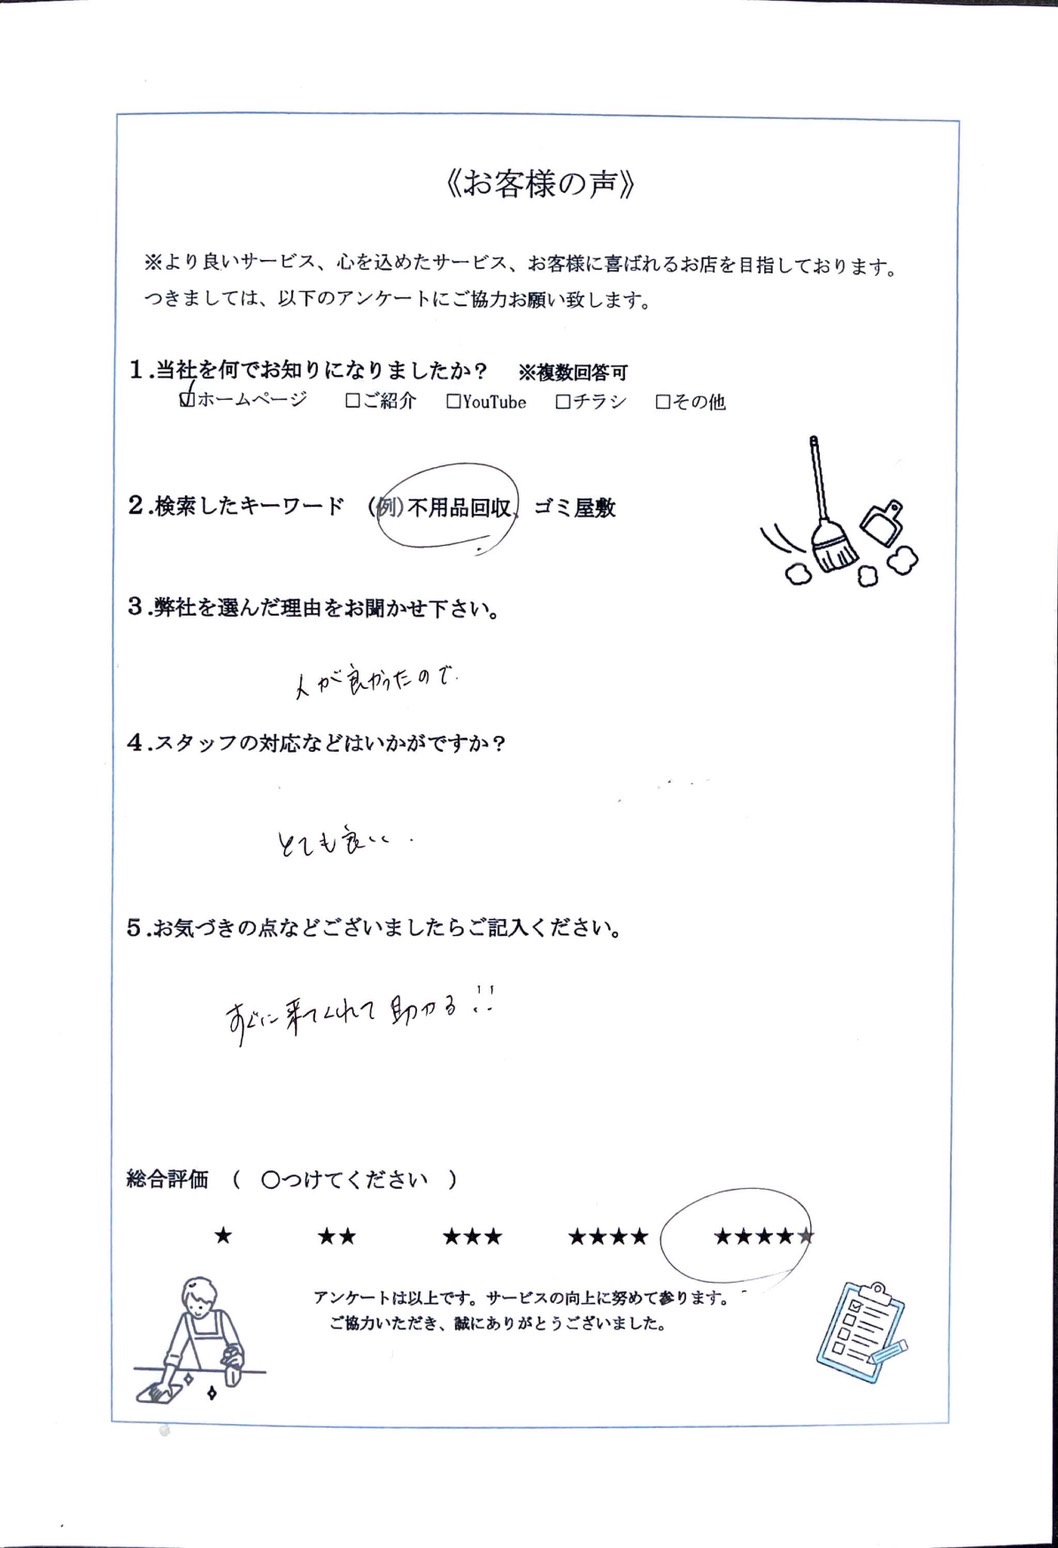 《お客様の声》
※より良いサービス、心を込めたサービス、お客様に喜ばれるお店を目指しております。
つきましては、以下のアンケートにご協力お願い致します。
1.当社を何でお知りになりましたか？　※複数回答可
☑ホームページ　□ご紹介　□YouTube　□チラシ　□その他
2.検索したキーワード　（例）不用品回収、ゴミ屋敷
3.弊社を選んだ理由をお聞かせ下さい。
人が良かったので.
4.スタッフの対応などはいかがですか？
とても良い.
5.お気づきの点などございましたらご記入ください。
すぐに来てくれて助かる!!
総合評価　（　○つけてください　）
★　★★　★★★　★★★★　★★★★★
アンケートは以上です。サービスの向上に努めて参ります。
ご協力いただき、誠にありがとうございました。